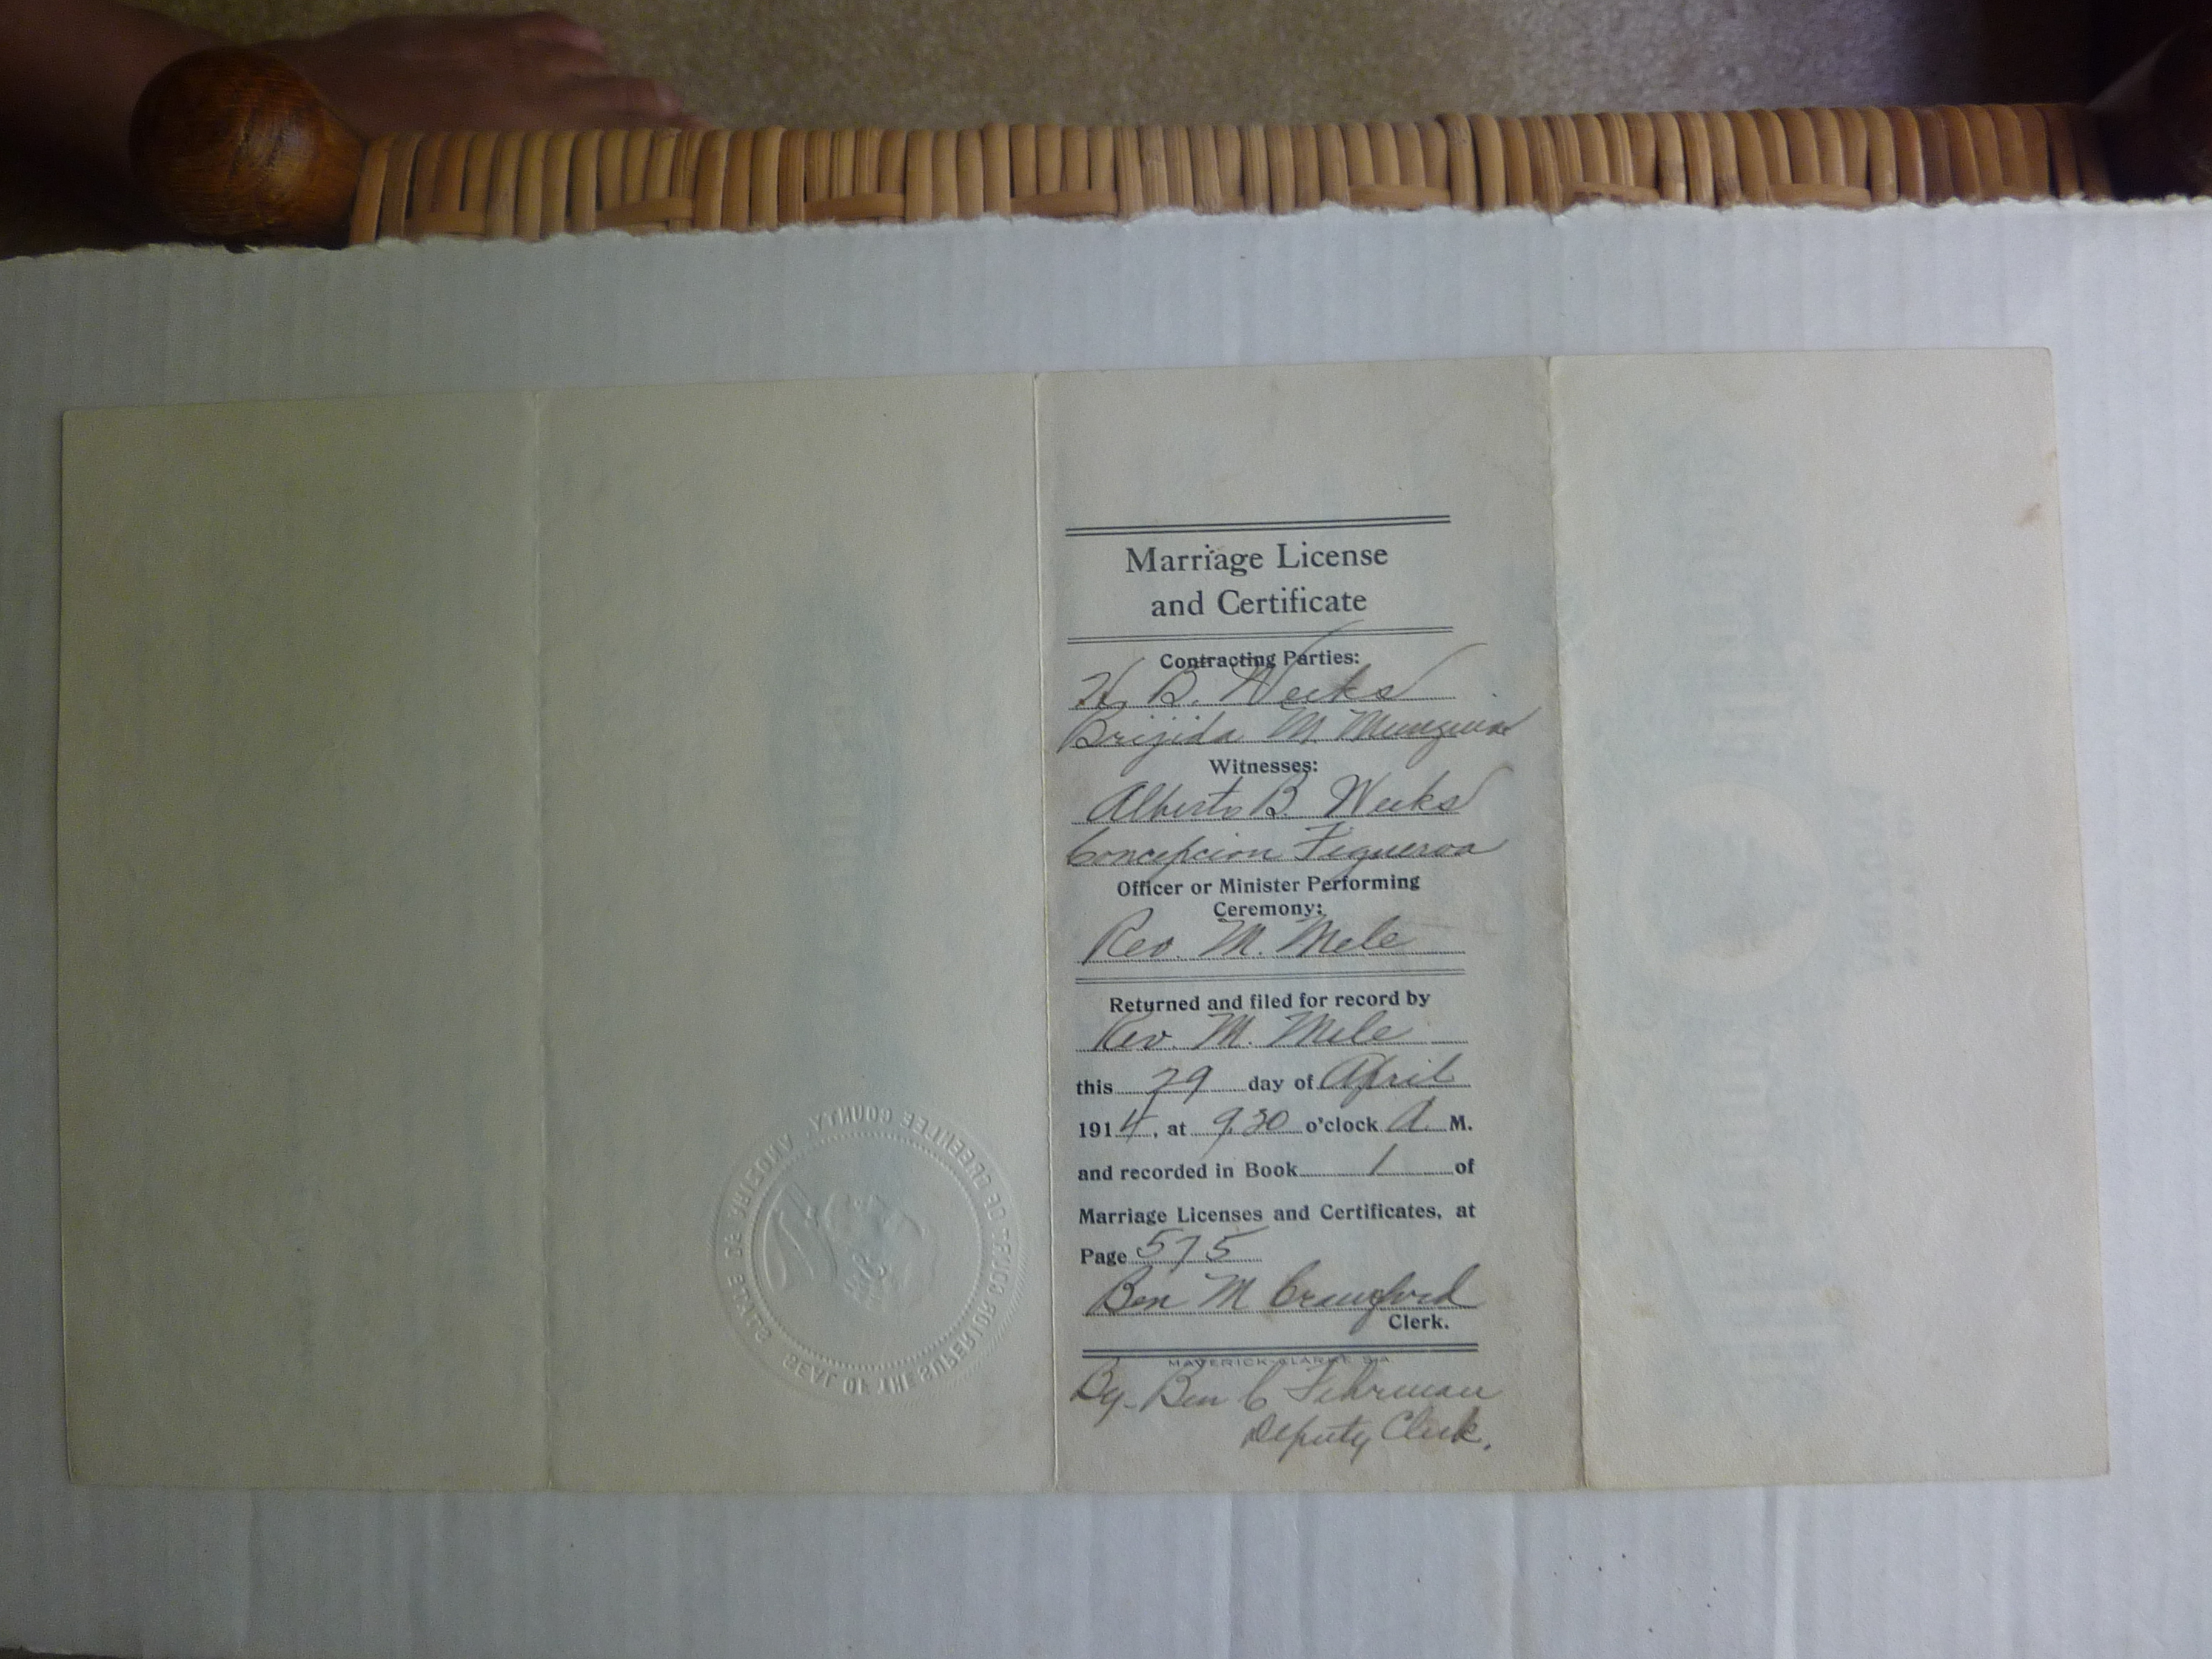 Marriage License
and Certificate
Contracting Parties:
H. B. Weeks
Brijida M. Munguia
Witnesses:
Alberto B. Weeks
Concepcion Figueroa
Officer or Minister Performing
Ceremony:
Rev. M. Mele
Returned and filed for record by
Rev. M. Mele
this 29 day of April
1914, at 9.30 o'clock A. M.
and recorded in Book 1 of
Marriage Licenses and Certificates, at
Page 575
Ben M Crawford
Clerk.
MAVERICK-CLARKE S A
By- Ben C Fehrman
Deputy Clerk.
SEAL OF THE SUPERIOR COURT OF GREENLEE COUNTY, STATE OF ARIZONA